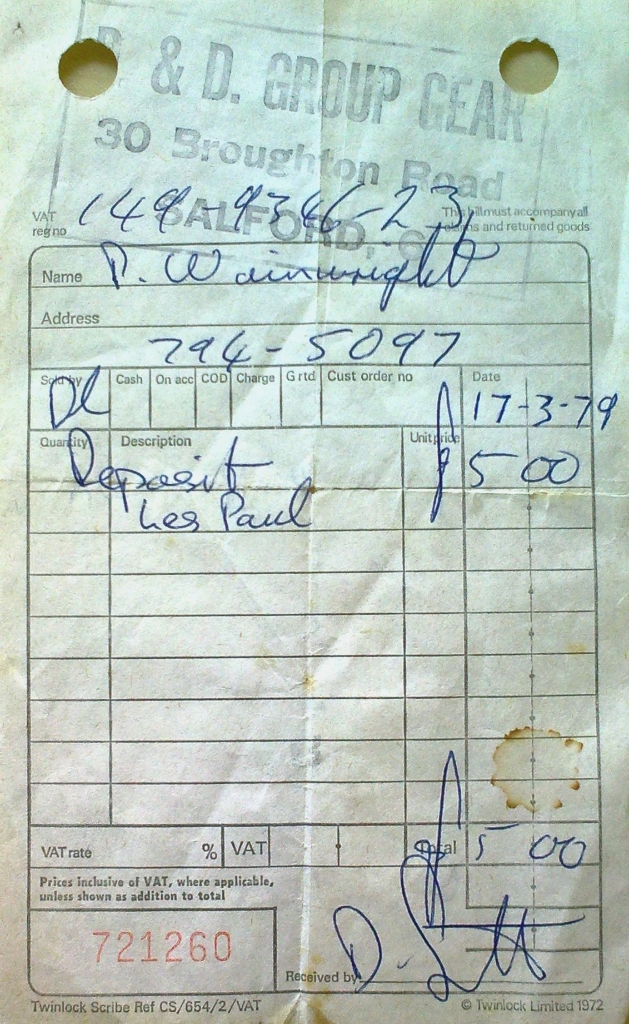 & D. GROUP GEAR
30 Broughton Road
SALFORD, 6
VAT reg no 149-9346-23
This bill must accompany all claims and returned goods
Name P. Wainwright
Address
794-5097
Sold by Cash On acc COD Charge G rtd Cust order no Date
DL 17-3-79
Quantity Description Unit price
Deposit £ 5 00
Les Paul
VAT rate % VAT Total £ 5 00
Prices inclusive of VAT, where applicable,
unless shown as addition to total
721260
Received by D.
Twinlock Scribe Ref CS/654/2/VAT © Twinlock Limited 1972